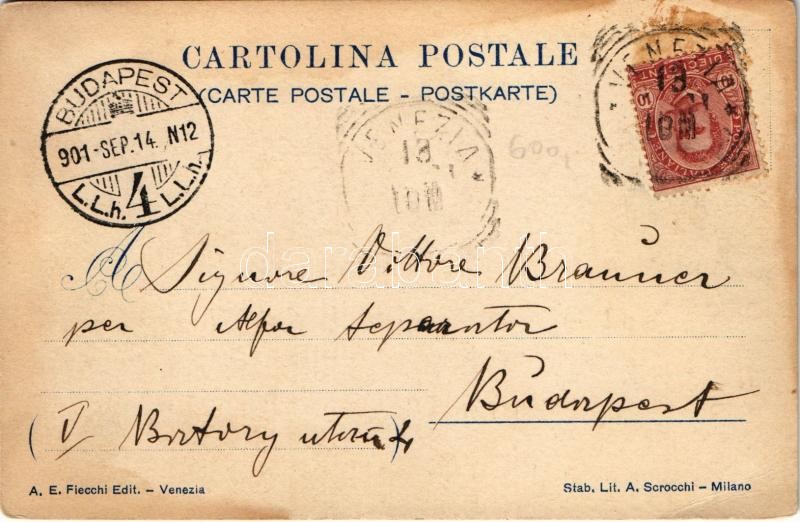 CARTOLINA POSTALE
(CARTE POSTALE - POSTKARTE)
BUDAPEST
901-SEP.14. N12
L.L.h. 4 L.L.h.
VENEZIA
13
10 M
VENEZIA
13
10 M
A Signore Vittore Brauner
per
Budapest
(V Bátory utca 4)
A. E. Fiecchi Edit. - Venezia
Stab. Lit. A. Scrocchi - Milano
darabanth